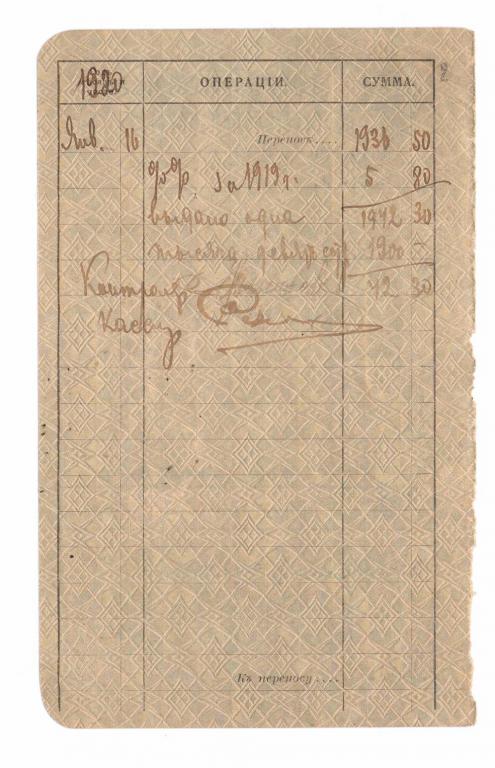 1920 ОПЕРАЦІИ. СУММА.
Янв. 16 Переносъ.... 1936 50
за 1919 г. 5 80
выдано одна 1942 30
тысяча девятьсот 1900 –
Контролер 42 30
Кассир
Къ переносу....
2